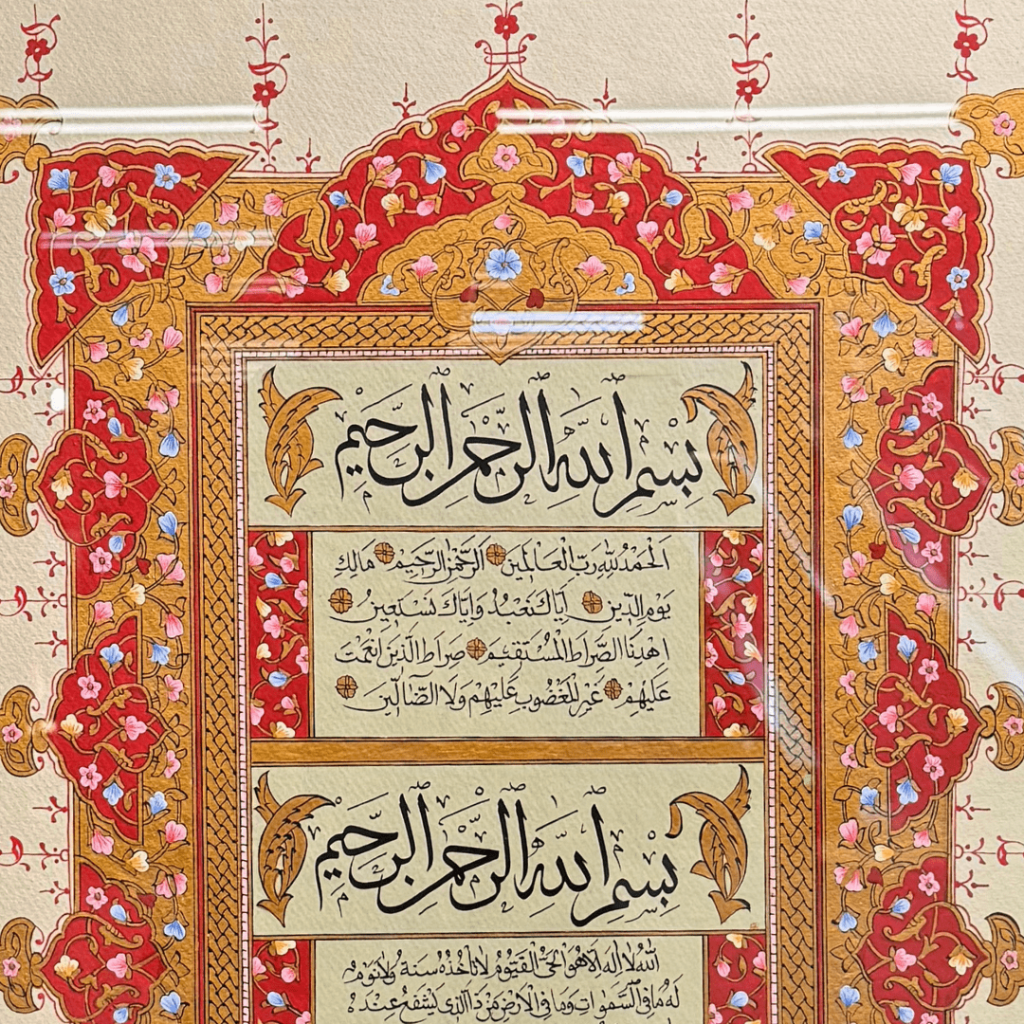 بِسْمِ اللّٰهِ الرَّحْمٰنِ الرَّحِيْمِ
اَلْحَمْدُ لِلّٰهِ رَبِّ الْعَالَمِيْنَ الرَّحْمٰنِ الرَّحِيْمِ مَالِكِ
يَوْمِ الدِّيْنِ اِيَّاكَ نَعْبُدُ وَاِيَّاكَ نَسْتَعِيْنُ
اِهْدِنَا الصِّرَاطَ الْمُسْتَقِيْمَ صِرَاطَ الَّذِيْنَ اَنْعَمْتَ
عَلَيْهِمْ غَيْرِ الْمَغْضُوبِ عَلَيْهِمْ وَلَا الضَّالِّيْنَ
بِسْمِ اللّٰهِ الرَّحْمٰنِ الرَّحِيْمِ
اَللّٰهُ لَا اِلٰهَ اِلَّا هُوَ الْحَيُّ الْقَيُّوْمُ لَا تَأْخُذُهُ سِنَةٌ وَلَا نَوْمٌ
لَهُ مَا فِي السَّمٰوَاتِ وَمَا فِي الْاَرْضِ مَنْ ذَا الَّذِي يَشْفَعُ عِنْدَهُ